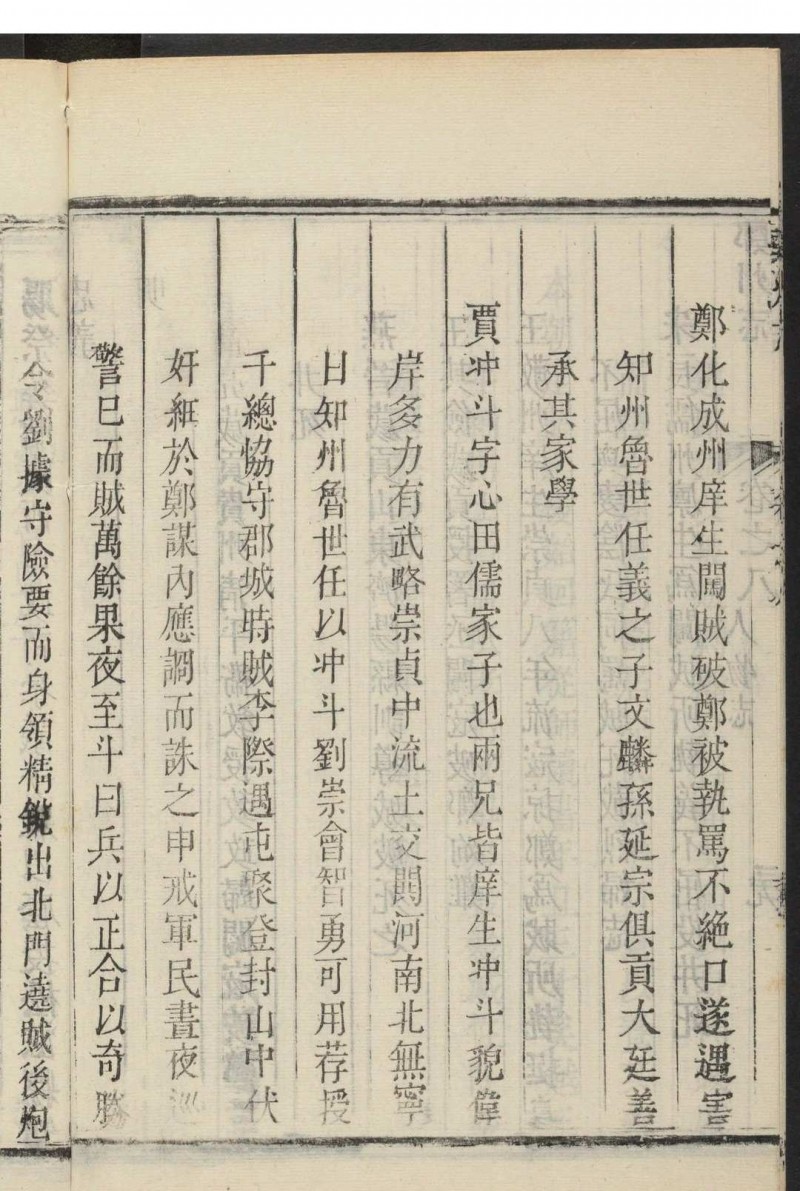 鄭化成州庠生闖賊破鄭被執罵不絕口遂遇害
知州魯世任義之子文麟孫延宗俱貢大廷善
承其家學
賈冲斗字心田儒家子也兩兄皆庠生冲斗貌偉
岸多力有武略崇貞中流土交閧河南北無寧
日知州魯世任以冲斗劉崇會智勇可用荐授
千總恊守郡城時賊李際遇屯聚登封山中伏
奸細於鄭謀內應調而誅之申戒軍民晝夜巡
警巳而賊萬餘果夜至斗曰兵以正合以奇勝
令劉據守險要而身領精銳出北門遶賊後炮